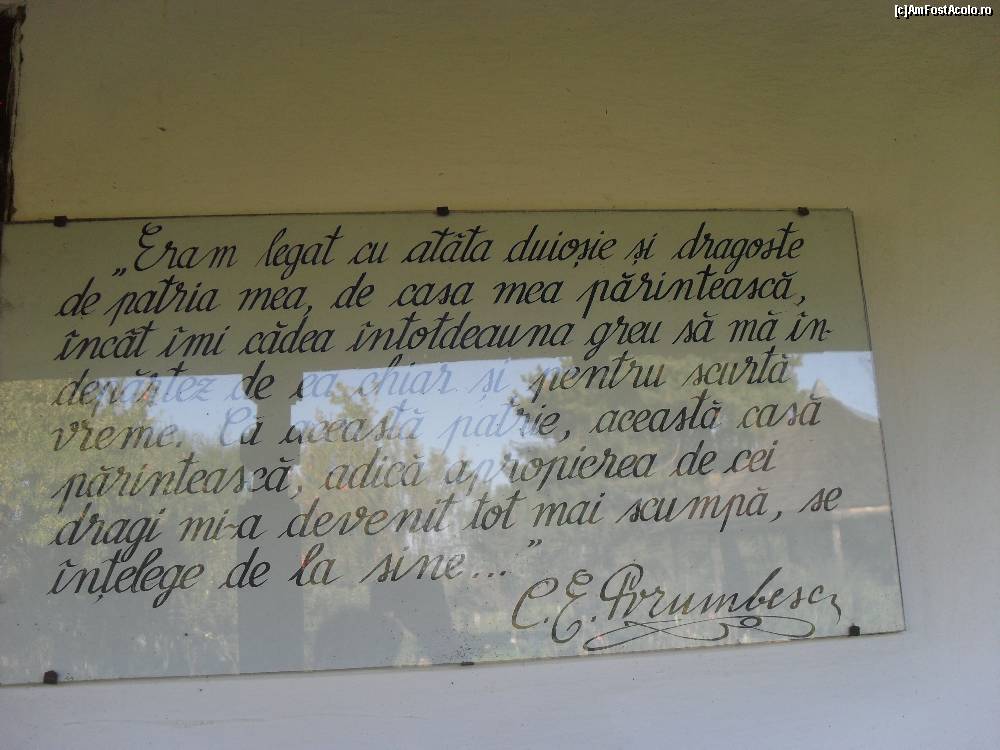 [c]AmFostAcolo.ro
„Eram legat cu atâta duioșie și dragoste
de patria mea, de casa mea părintească,
încât îmi cădea întotdeauna greu să mă în-
depărtez de ea chiar și pentru scurtă
vreme. Că această patrie, această casă
părintească, adică apropierea de cei
dragi mi-a devenit tot mai scumpă, se
înțelege de la sine..."
C. E. Porumbescu